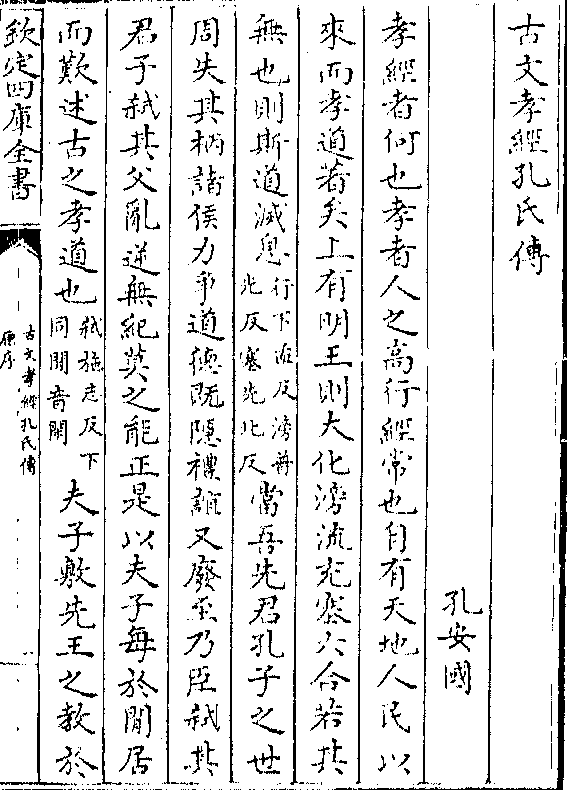 古文孝經孔氏傳
孔安國
孝經者何也孝者人之高行經常也自有天地人民以
來而孝道著矣上有明王則大化滂流充塞六合若其
無也則斯道滅息行下孟反滂普光反塞先北反當吾先君孔子之世
周失其柄諸侯力爭道德既隱禮誼又廢至乃臣弑其
君子弑其父亂逆無紀莫之能正是以夫子每於閒居
而歎述古之孝道也弑施志反下同閒音閑夫子敷先王之教於
欽定四庫全書
古文孝經孔氏傳
原序